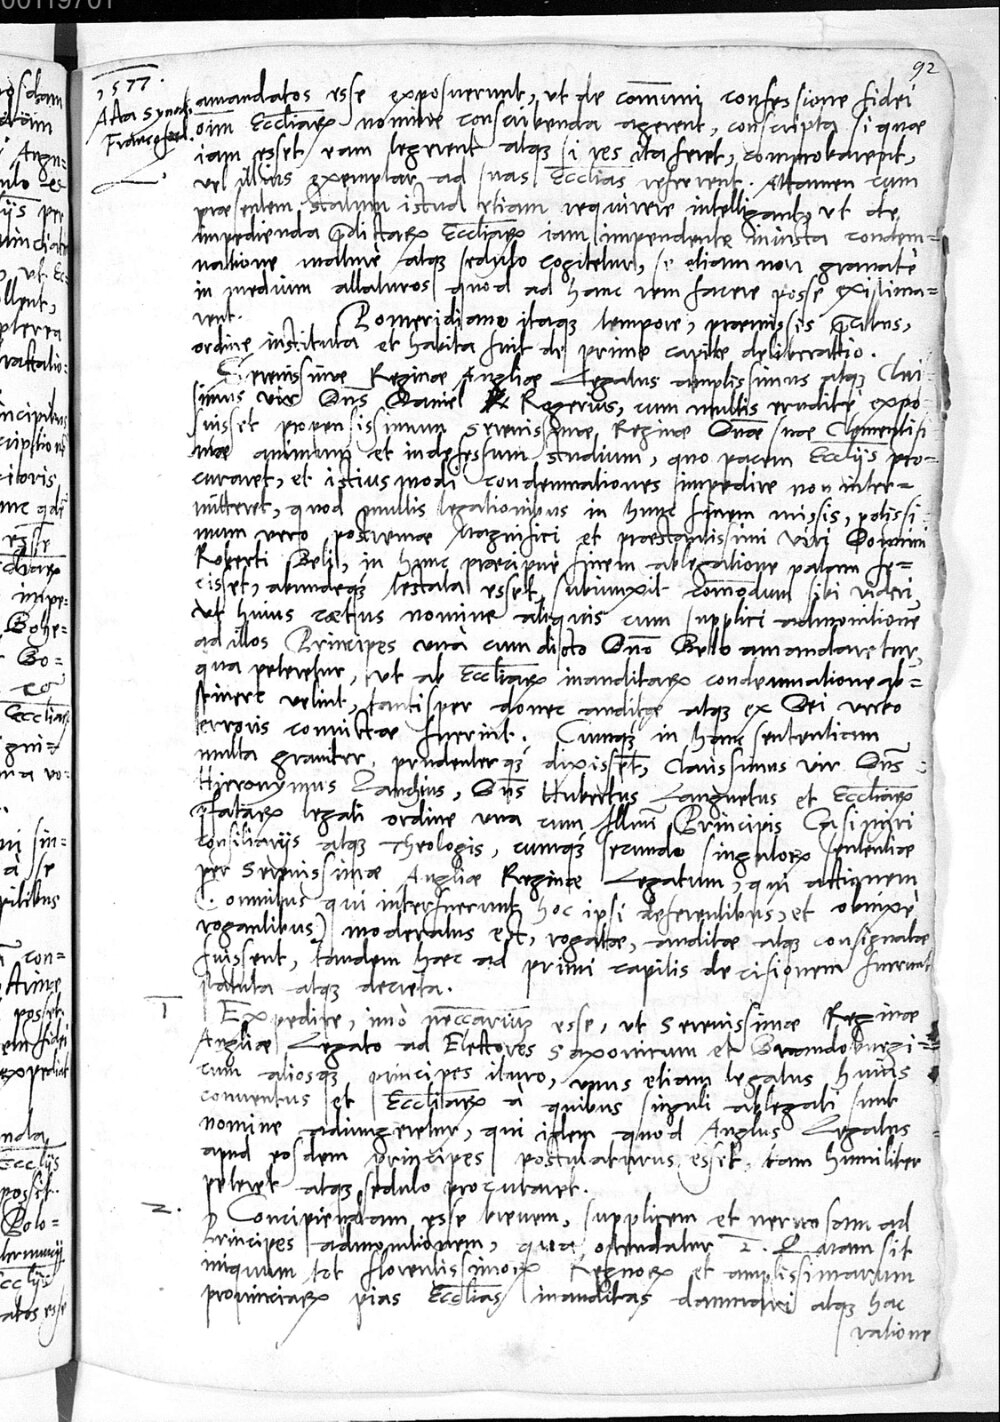 00119701
92
1577.
Acta Synod.
Francoford.
amandatos esse exposuerunt, ut de com̄uni confessione fidei
oīm Eccliarꝝ nomine conscribenda agerent, conscripta si quae
iam esset eam legerent atqꝫ si res ita ferret, comprobarent,
vel illius exemplar ad suas Ecclias referrent. Attamen cum
praesentem statum istud etiam requirere intelligant, ut de
impedienda p̄dictarꝝ Eccliarꝝ iam impendente iniusta condem=
natione mature atqꝫ sedulo cogitetur, se etiam non grauatè
in medium allaturos quod ad hanc rem facere posse existima=
rent. Pomeridiano itaqꝫ tempore, praemissis p̄cibus,
ordine instituta et habita fuit de primo capite deliberatio.
Serenissimae Reginae Angliae Legatus amplissimus atqꝫ Claris
simus vir Dn̄s Daniel Rogerius, cum multis eruditè expo
suisset propensissimum Serenissimae Reginae Dn̄ae suae Clementissi
mae animum et indefessum studium, quo pacem Eccliis pro=
curaret, et istiusmodi condemnationes impedire non inter=
mitteret, quod multis legationibus in hunc finem missis, potissi
mum vero postremae Magnifici et praestantissimi viri Domini
Roberti Beli, in hunc praecipuè finem ablegatione palam fe=
cisset, abundeqꝫ testata esset, subiunxit com̄odum sibi videri
ut huius coetus nomine aliquis cum supplici admonitione
ad illos Principes unà cum dicto Dn̄o Bello amandaretur,
qua peteretur, ut ab Eccliarꝝ inauditarꝝ condemnatione ab=
stinere velint, tantisper donec auditae atqꝫ ex Dei verbo
erroris convictae fuerint. Cumqꝫ in hanc sententiam
multa grauiter, prudenterqꝫ dixisset, Clarissimus vir Dn̄s
Hieronymus Zanchius, Dn̄s Hubertus Languetus et Eccliarꝝ
p̄fatarꝝ legati ordine una cum Illmi Principis Casimiri
consiliariis atqꝫ Theologis, cumqꝫ secundo singulorꝝ sententiae
per Serenissimae Angliae Reginae Legatum, qui actionem
(omnibus qui interfuerunt hoc ipsi deferentibus, et obnixè
rogantibus) moderatus est, rogatae, auditae atqꝫ consignatae
fuissent, tandem haec ad primi capitis decisionem fuerunt
statuta atqꝫ decreta.
1 Expedire, imò necc̄arium esse, ut Serenissimae Reginae
Angliae Legato ad Electores Saxonicum et Brandoburgi=
cum aliosqꝫ principes ituro, unus etiam legatus huius
conventus et Eccliarꝝ à quibus singuli ablegati sunt
nomine adiungeretur, qui idem quod Anglus Legatus
apud eosdem principes postulaturus esset, tam humiliter
peteret atqꝫ sedulo procuraret.
2. Concipiendam esse brevem, supplicem et nervosam ad
Principes admonitionem, qua ostendatur 1. Quam sit
iniquum tot florentissimorꝝ Regnorꝝ et amplissimarum
provinciarꝝ pias Ecclias inauditas damnari atqꝫ hac
ratione